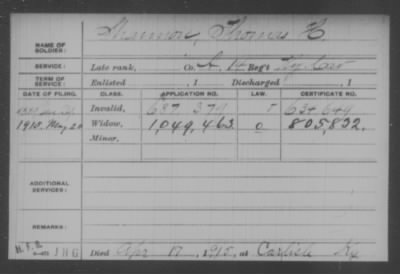 Shannon, Thomas H
NAME OF SOLDIER:
SERVICE: Late rank, Co. A, 14 Reg't Ky. Cav
TERM OF SERVICE: Enlisted , 1 Discharged , 1
DATE OF FILING. CLASS. APPLICATION NO. LAW. CERTIFICATE NO.
Invalid, 637,374 634,644
1915, May 20 Widow, 1049,463 o 805,832.
Minor,
ADDITIONAL SERVICES:
REMARKS:
JHG Died Apr 17, 1915, at Carlisle Ky